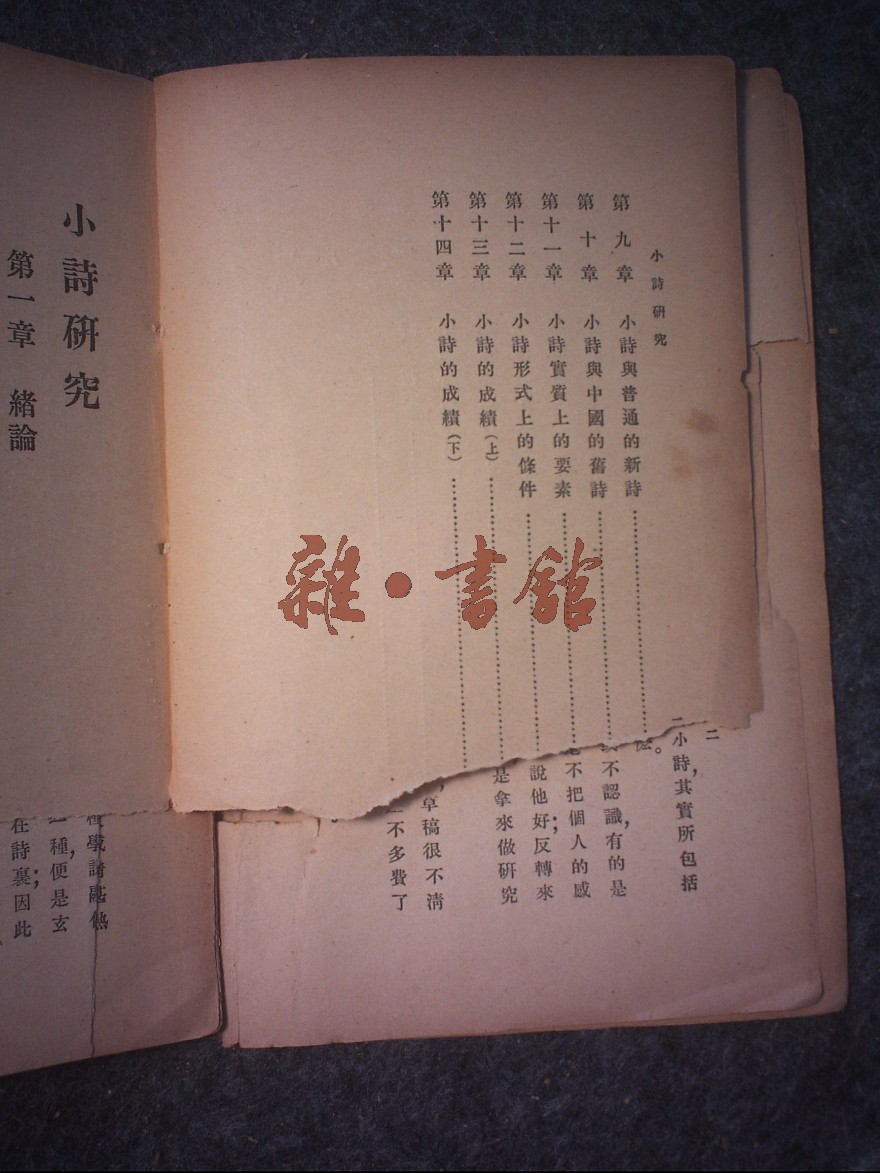 小詩研究
第九章 小詩與普通的新詩
第十章 小詩與中國的舊詩
第十一章 小詩實質上的要素
第十二章 小詩形式上的條件
第十三章 小詩的成績(上)
第十四章 小詩的成績(下)
二
小詩,其實所包括
。
不認識,有的是
不把個人的感
說他好;反轉來
是拿來做研究
草稿很不清
不多費了
雜·書館
小詩研究
第一章 緒論
種便是玄
在詩裏;因此